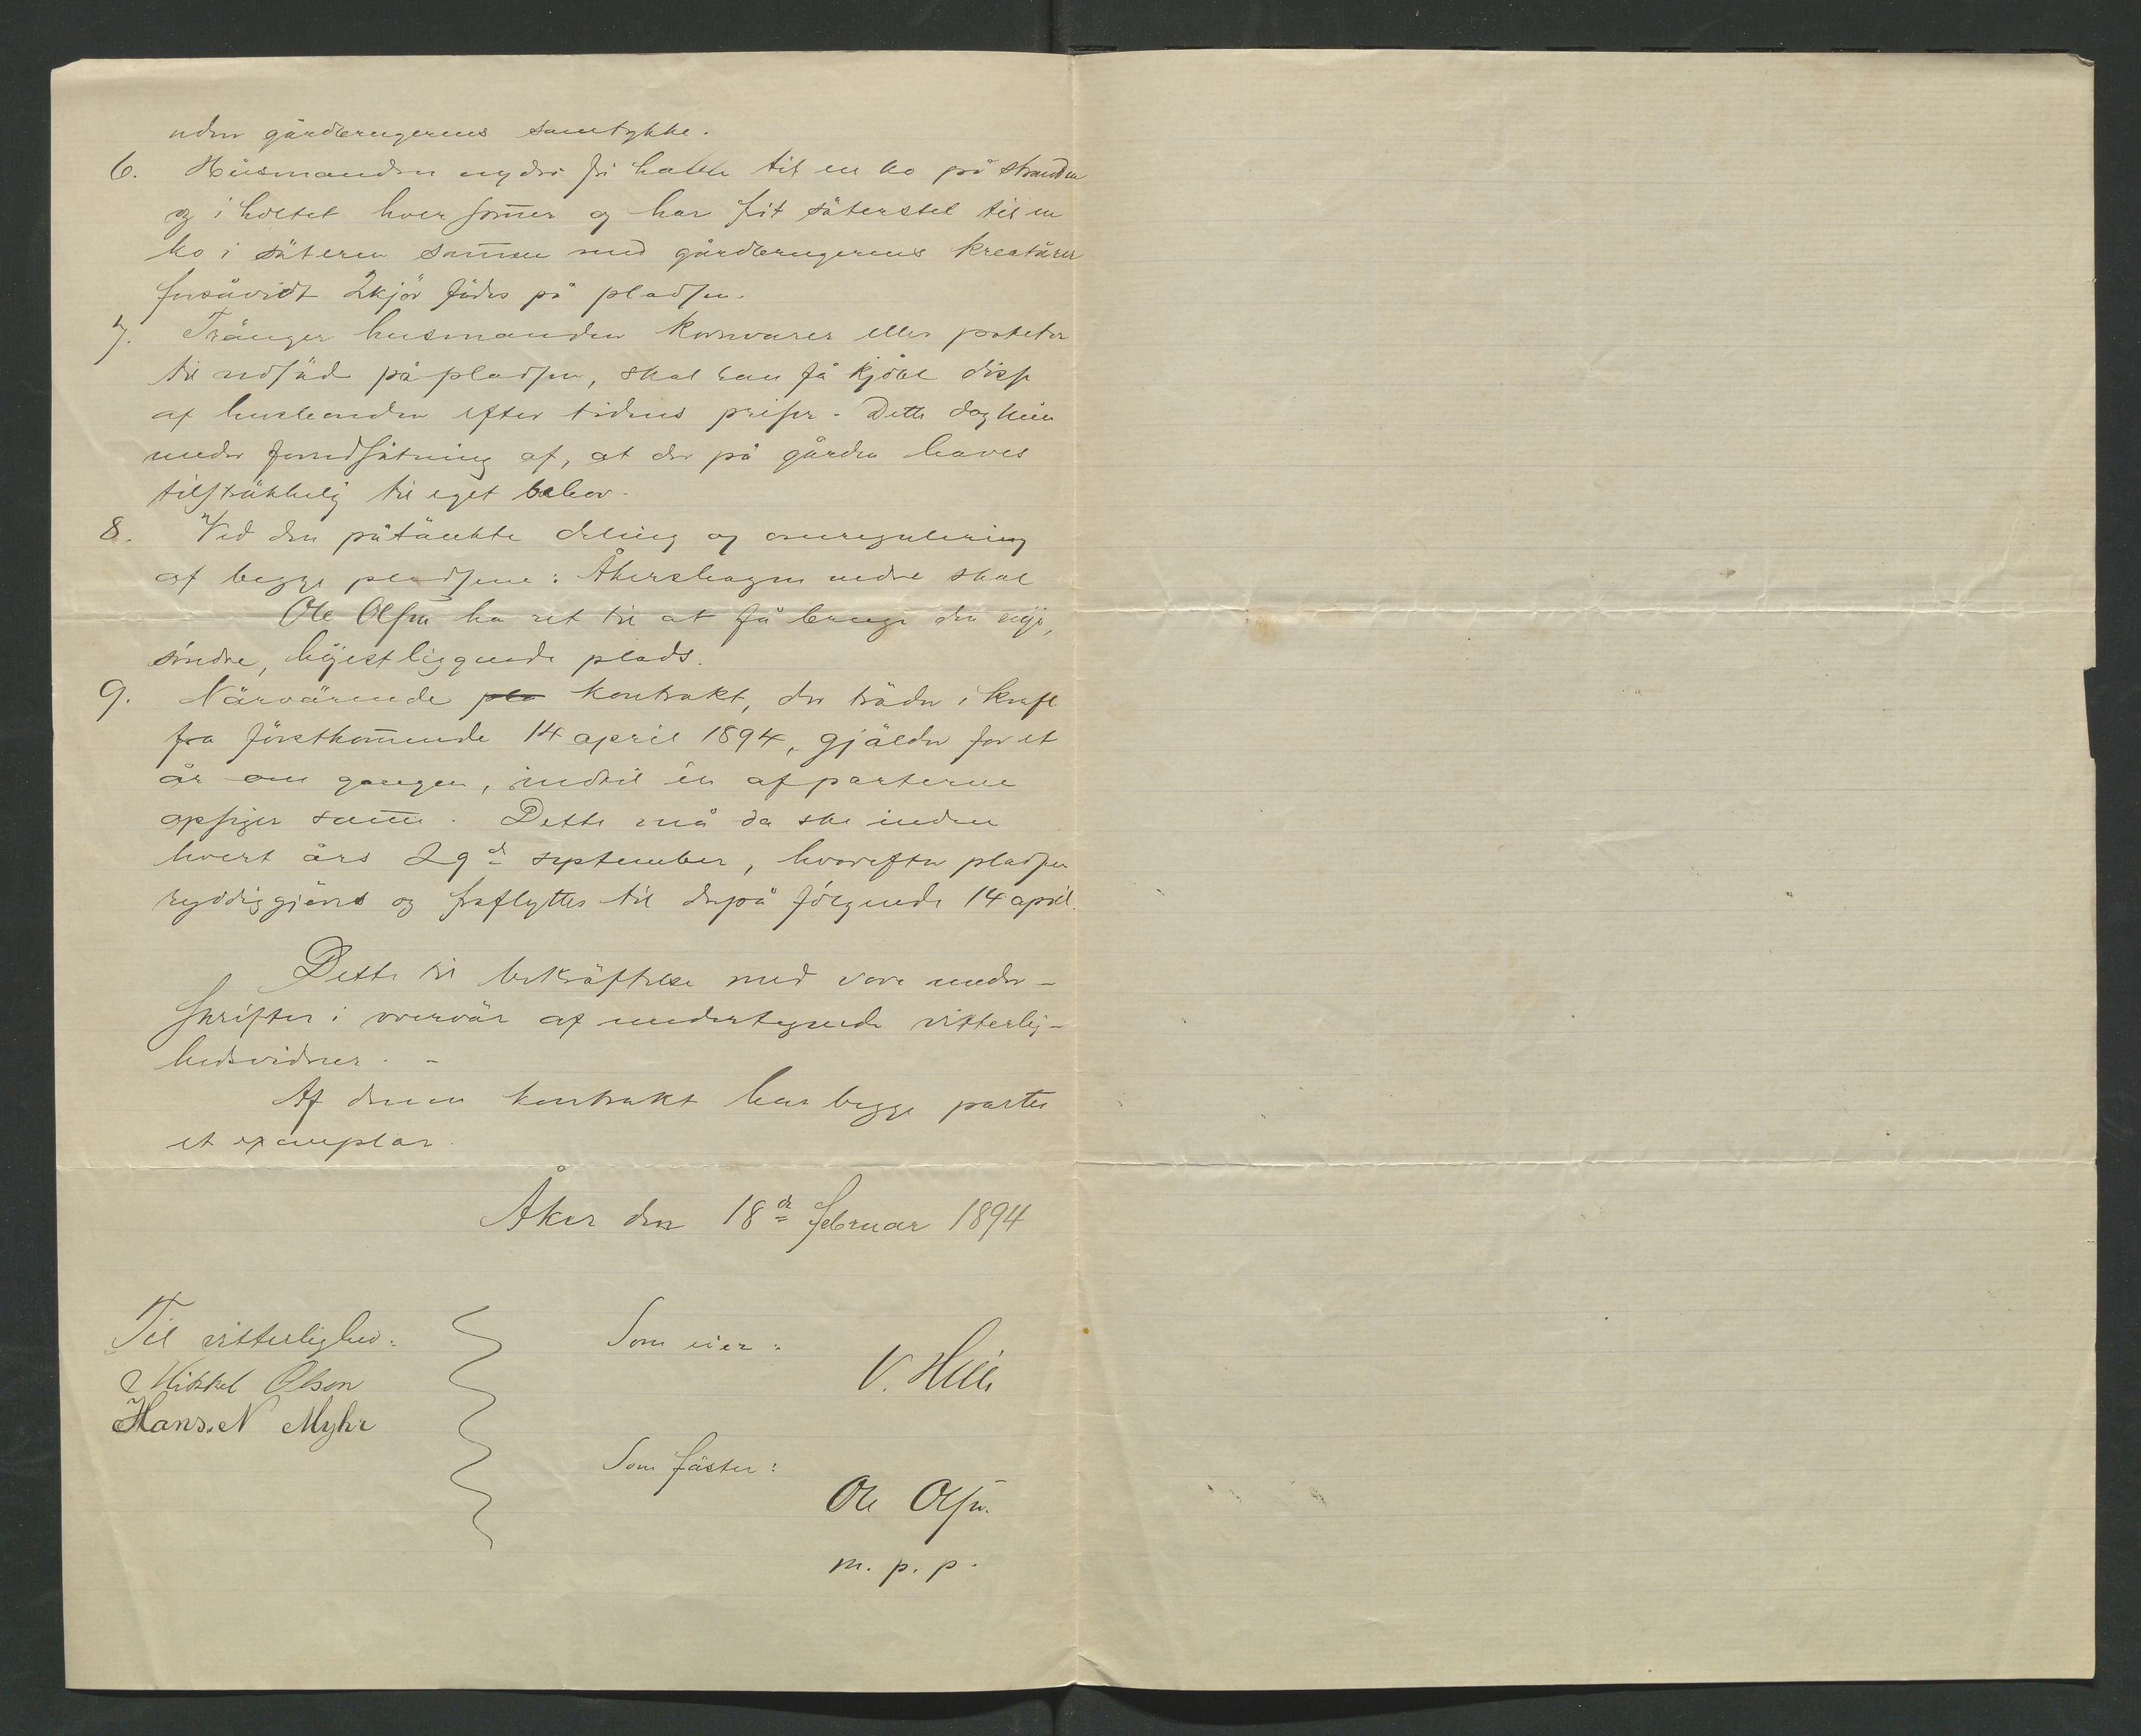 uden gårdbrugerens samtykke.
6. Husmanden nyder fri havn til en ko på stranden
og i holtet hver som̄er og har frit säterstel til en
ko i säteren sam̄en med gårdbrugerens kreatürer
forsåvidt 2 kjör födes på pladsen.
7. Tränger husmanden kornvarer eller poteter
til udsäd på pladsen, skal han få kjöbe disse
af husbonden efter tidens priser. Dette dog kun
under forudsätning af, at der på gården haves
tilsträkkelig til eget behov.
8. Ved den påtänkte deling og omregulering
af begge pladsene: Åkershagen nedre skal
Ole Olsen ha ret til at få bruge den
söndre, höjestliggende plads.
9. Närvärende pla kontrakt, der träder i kraft
fra förstkom̄ende 14 april 1894, gjälder for et
år om gangen, indtil én af parterne
opsiger sam̄e. Dette må da ske inden
hvert års 29de september, hvorefter pladsen
ryddiggjöres og fraflyttes til derpå fölgende 14 april.
Dette til bekräftelse med vore under-
skrifter i overvär af undertegnede vitterlig-
hedsvidner. -
Af denne kontrakt har begge parter
et exemplar.
Åker den 18de februar 1894
Til vitterlighed:
Mikkel Olson
Hans. N Myhr
Som eier:
V. Hill
Som fäster:
Ole Olsen.
m. p. p.